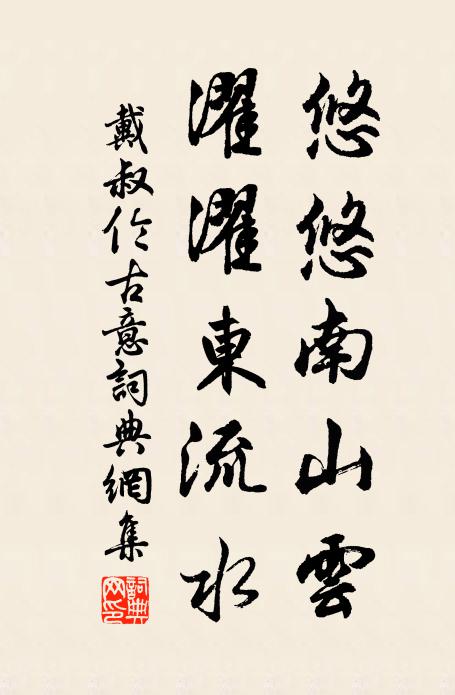 悠悠南山雲
濯濯東流水
戴叔伦古意詞典網集
詞典网印